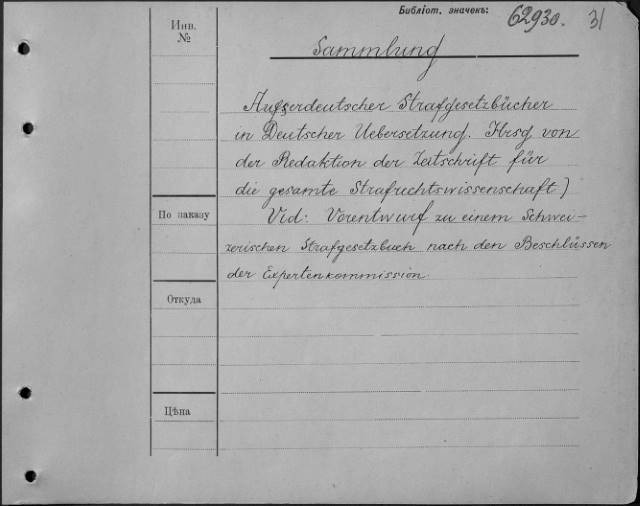 Библіот. значекъ: 62930. 31
Инв.
№
Sammlung
Aufserdeutscher Strafgesetzbücher
in Deutscher Uebersetzung. Hrsg von
der Redaktion der Zeitschrift für
die gesamte Strafrechtswissenschaft)
По заказу
Vid: Vorentwurf zu einem Schwei-
zerischen Strafgesetzbuch nach den Beschlüssen
der Expertenkommission.
Откуда
Цѣна